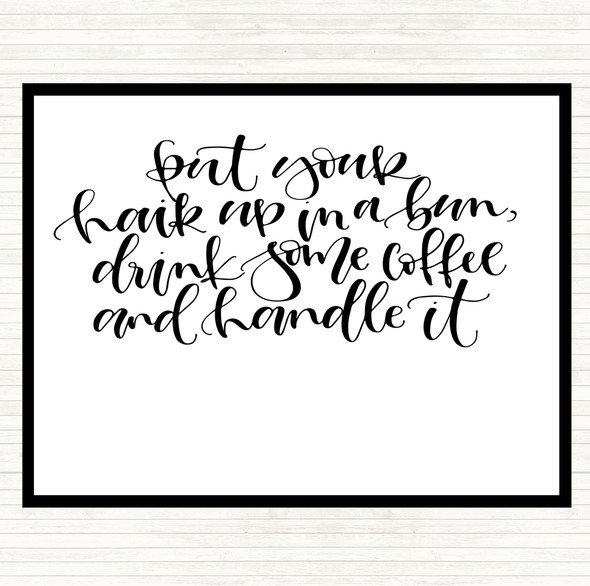 put your
hair up in a bun,
drink some coffee
and handle it